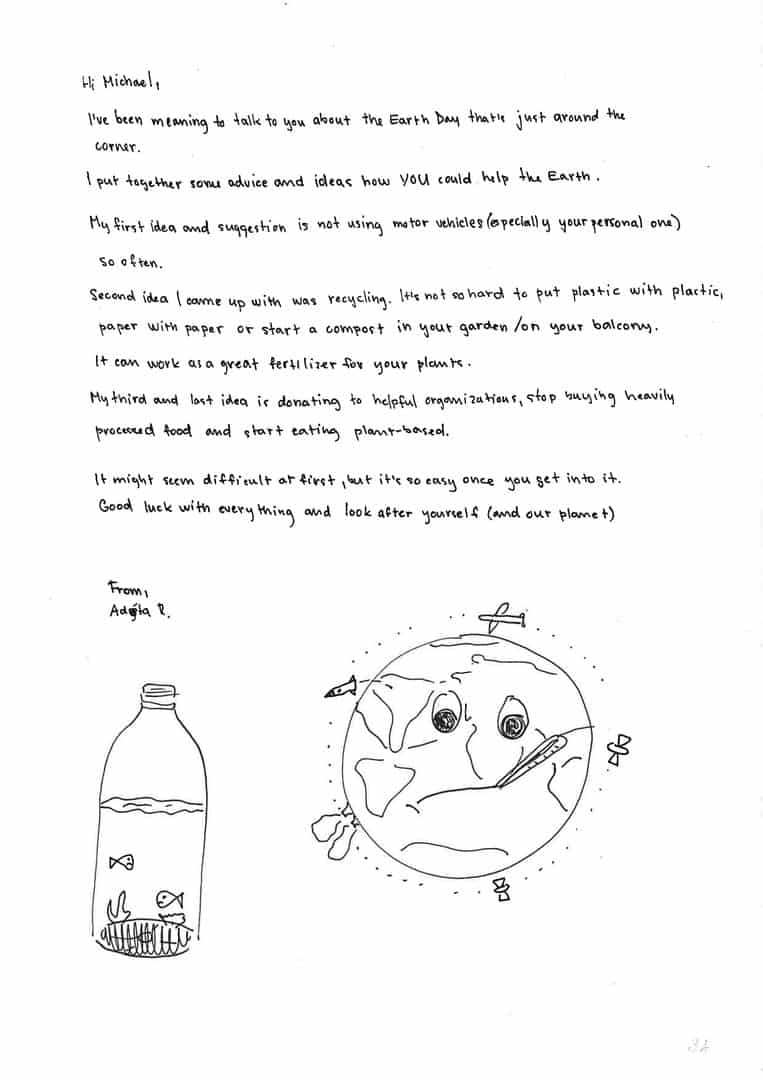 Hi Michael,
I've been meaning to talk to you about the Earth Day that's just around the
corner.
I put together some advice and ideas how YOU could help the Earth.
My first idea and suggestion is not using motor vehicles (especially your personal one)
so often.
Second idea I came up with was recycling. It's not so hard to put plastic with plactic,
paper with paper or start a compost in your garden /on your balcony.
It can work as a great fertilizer for your plants.
My third and last idea is donating to helpful organizations, stop buying heavily
processed food and start eating plant-based.
It might seem difficult at first, but it's so easy once you get into it.
Good luck with everything and look after yourself (and our planet)
From,
R.